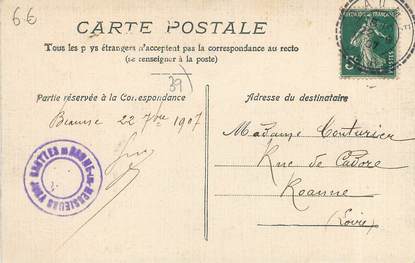 6-6
CARTE POSTALE
Tous les pays étrangers n'acceptent pas la correspondance au recto
(se renseigner à la poste)
39
Partie réservée à la Correspondance
Adresse du destinataire
22 7bre 1907
Madame Couturier
Rue de Cadore
Roanne
(Loire)
GROTTES DE BAUME-les-MESSIEURS